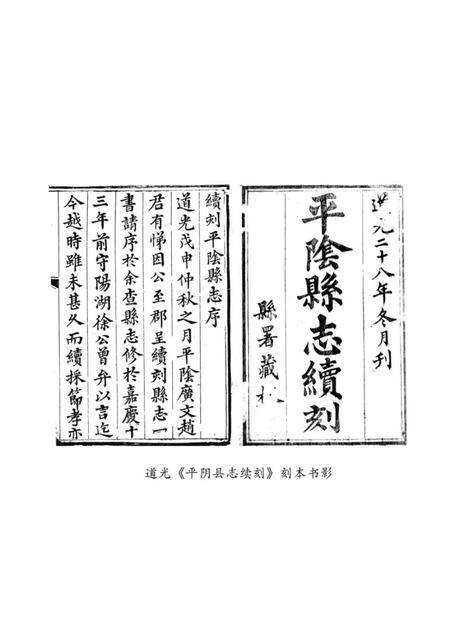 道光二十八年冬月刊
平陰縣志續刻
縣署藏板
續刻平陰縣志序
道光戊申仲秋之月平陰廣文趙
君有悌因公至郡呈續刻縣志一
書請序於余查縣志修於嘉慶十
三年前守陽湖徐公曾弁以言迄
今越時雖未甚久而續採節孝亦
道光《平阴县志续刻》刻本书影